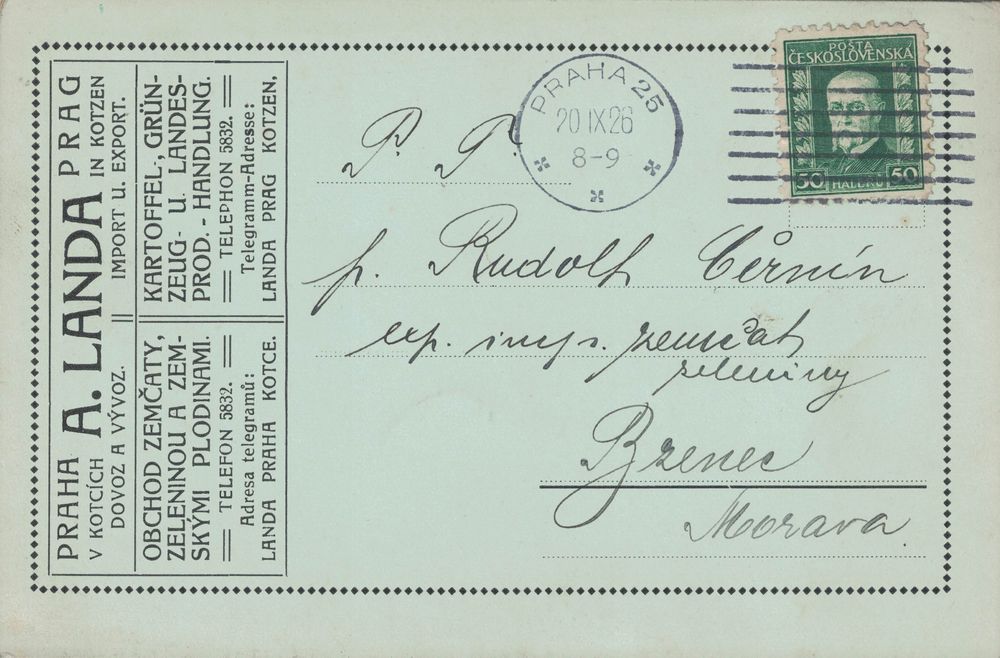 PRAHA A. LANDA PRAG
V KOTCÍCH IN KOTZEN
DOVOZ A VÝVOZ. IMPORT U. EXPORT.
OBCHOD ZEMČATY,
ZELENINOU A ZEM-
SKÝMI PLODINAMI.
TELEFON 5832.
Adresa telegramů:
LANDA PRAHA KOTCE.
KARTOFFEL-, GRÜN-
ZEUG- u. LANDES-
PROD.-HANDLUNG.
TELEPHON 5832.
Telegramm-Adresse:
LANDA PRAG KOTZEN.
PRAHA 25
20 IX 26
8-9
POŠTA
ČESKOSLOVENSKÁ
50 HALÉŘŮ 50
P. T.
p. Rudolf
exp. imp. zemčat
zeleniny
Bzenec
Morava.